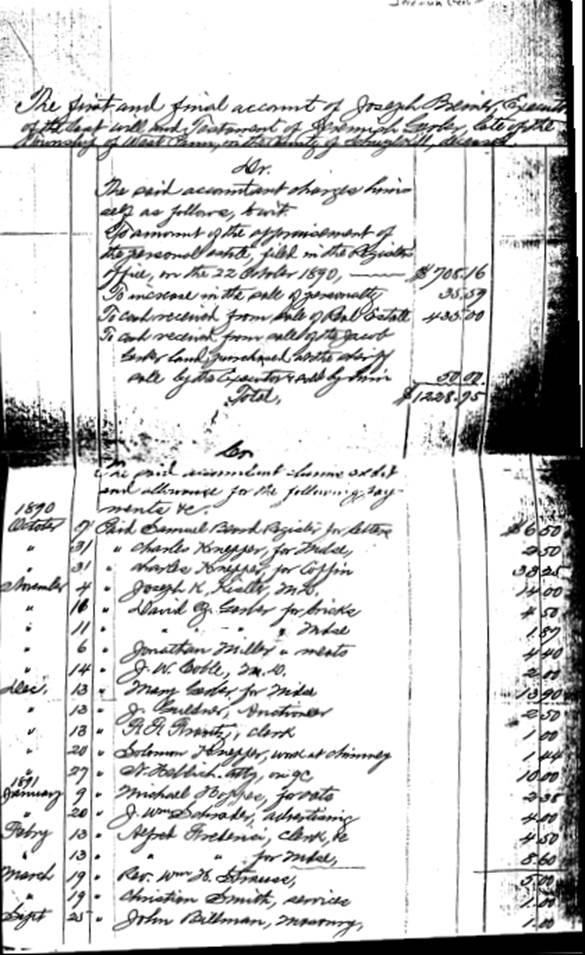 The first and final account of Joseph Bremer, Executor
of the last will and Testament of Jeremiah Gerber, late of the
Township of West Penn, in the County of Schuylkill, deceased
Dr.
The said accountant charges him-
self as follows, to wit.
To amount of the appraisement of
the personal estate, filed in the Register
office, on the 22 October 1890, $708.16
To increase in the sale of personalty 35.59
To cash received from sale of Real Estate 435.00
To cash received from sale of the Jacob
Gerber land purchased at the sheriff
sale by the Executor & sold by him 50.00
Total, $1228.95
Cr
The said accountant claims credit
and allowance for the following pay-
ments &c.
1890
October 7 Paid Samuel Beard Register for letters $6.50
" 31 " Charles Knepper, for Mdse, 2.50
" 31 " Charles Knepper, for Coffin 38.25
November 4 " Joseph K. Kistler M.D. 14.00
" 16 " David Gerber for bricks 4.50
" 11 " " " " Mdse 1.87
" 6 " Jonathan Miller " meats 4.40
" 14 " J. W. Coble, M.D. 2.00
Dec. 13 " Mary Gerber for Mdse 13.90
" 13 " J. Guldner, Auctioneer 2.50
" 13 " R. R. clerk 1.00
" 20 " Solomon Knepper, work at chimney 1.44
" 27 " N. Heblich atty, 10.00
1891
January 9 " Michael Hoppes, for oats 2.38
" 20 " J. Wm Schrader, advertising 4.00
Febry 13 " Alfred Frederici, clerk, &c 4.50
" 13 " " " for Mdse, 8.60
March 19 " Rev. Wm H. Strauss, 5.00
" 19 " Christian Smith, services 1.00
Sept 25 " John Billman, Masonry, 1.00